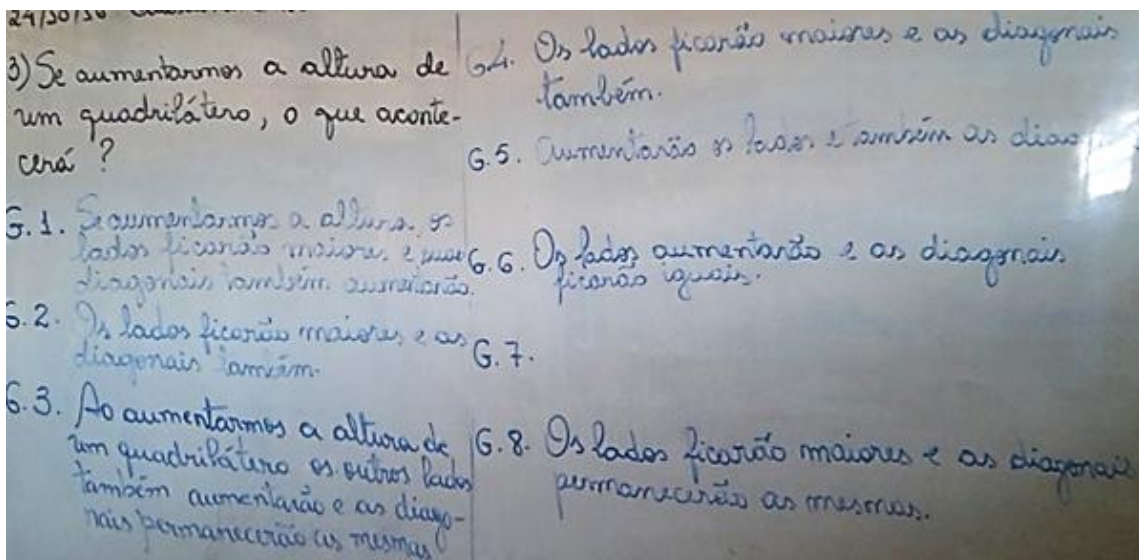 24/30/36
3) Se aumentarmos a altura de
um quadrilátero, o que aconte-
cerá ?
G.1. Se aumentarmos a altura, os
lados ficarão maiores e suas
diagonais também aumentarão.
G.2. Os lados ficarão maiores e as
diagonais também.
G.3. Ao aumentarmos a altura de
um quadrilátero os outros lados
também aumentarão e as diago-
nais permanecerão as mesmas
G4. Os lados ficarão maiores e as diagonais
também.
G.5. Aumentarão os lados e também as
G.6. Os lados aumentarão e as diagonais
ficarão iguais.
G.7.
G.8. Os lados ficarão maiores e as diagonais
permanecerão as mesmas.